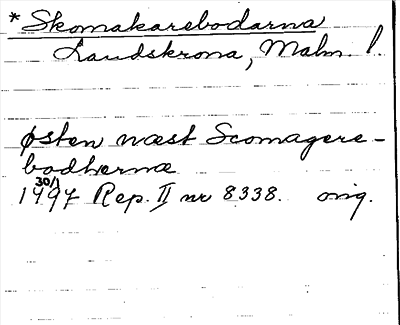 * Skomakarebodarna
Landskrona, Malm. l.
østen næst Scomagere-
bodherne
30/1
1497 Rep. II nr 8338. orig.